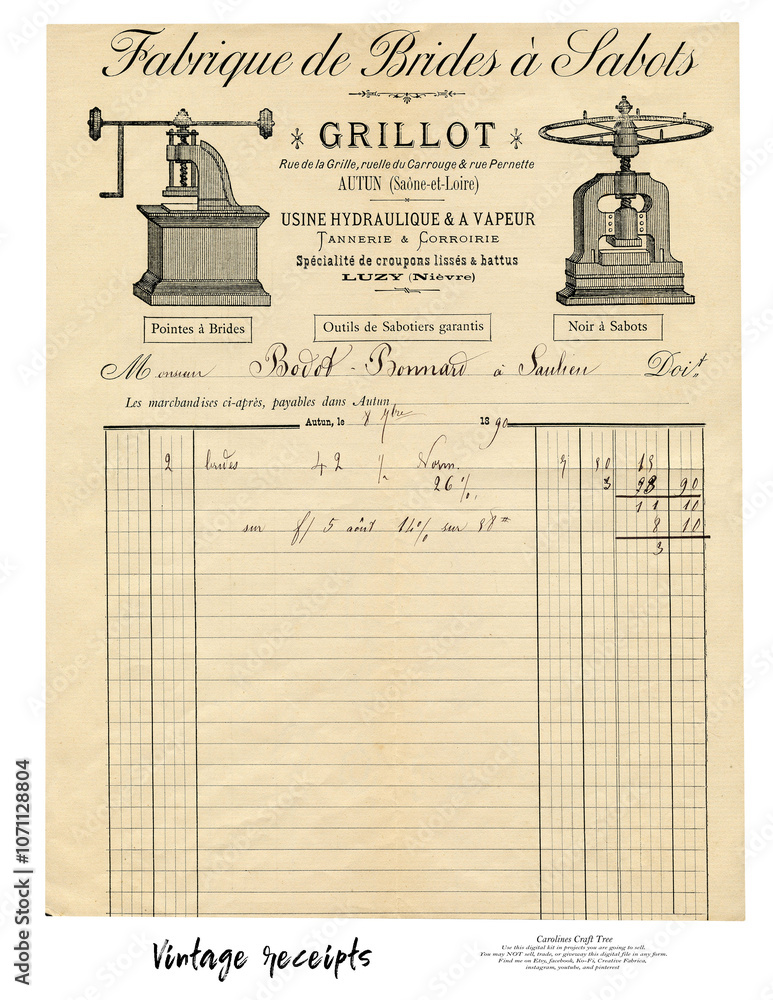 Fabrique de Brides à Sabots
GRILLOT
Rue de la Grille, ruelle du Carrouge & rue Pernette
AUTUN (Saône-et-Loire)
USINE HYDRAULIQUE & A VAPEUR
TANNERIE & CORROIRIE
Spécialité de croupons lissés & battus
LUZY (Nièvre)
Pointes à Brides
Outils de Sabotiers garantis
Noir à Sabots
Monsieur Bodot-Bonnard à Saulieu Doit
Les marchandises ci-après, payables dans Autun
Autun, le 8 7bre 1890
2 brides 42 % Norm. 80 15
26 %. 3 90
11 10
sur f/ 5 août 14% sur 88 8 10
3
Vintage receipts
Carolines Craft Tree
Use this digital kit in projects you are going to sell.
You may NOT sell, trade, or giveway this digital file in any form.
Find me on Etsy, facebook, Ko-Fi, Creative Fabrica,
instagram, youtube, and pinterest
Adobe Stock | #1071128804